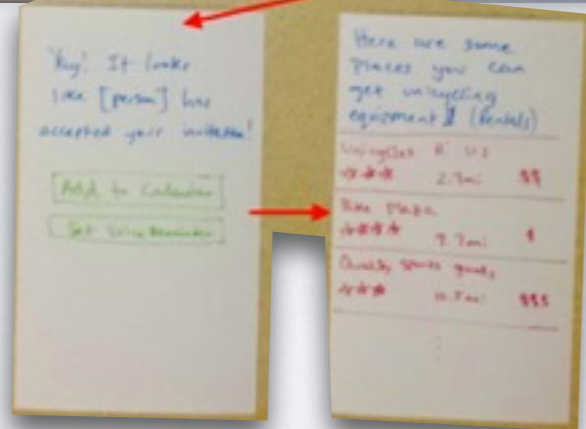 Yay! It looks
like [person] has
accepted your invitation!
Add to Calendar
Set Voice Reminder
Here are some
places you can
get unicycling
equipment (rentals)
Unicycles R US
2.7mi $$
Bike Plaza
9.7mi $
Quality Sports goods
10.5mi $$$